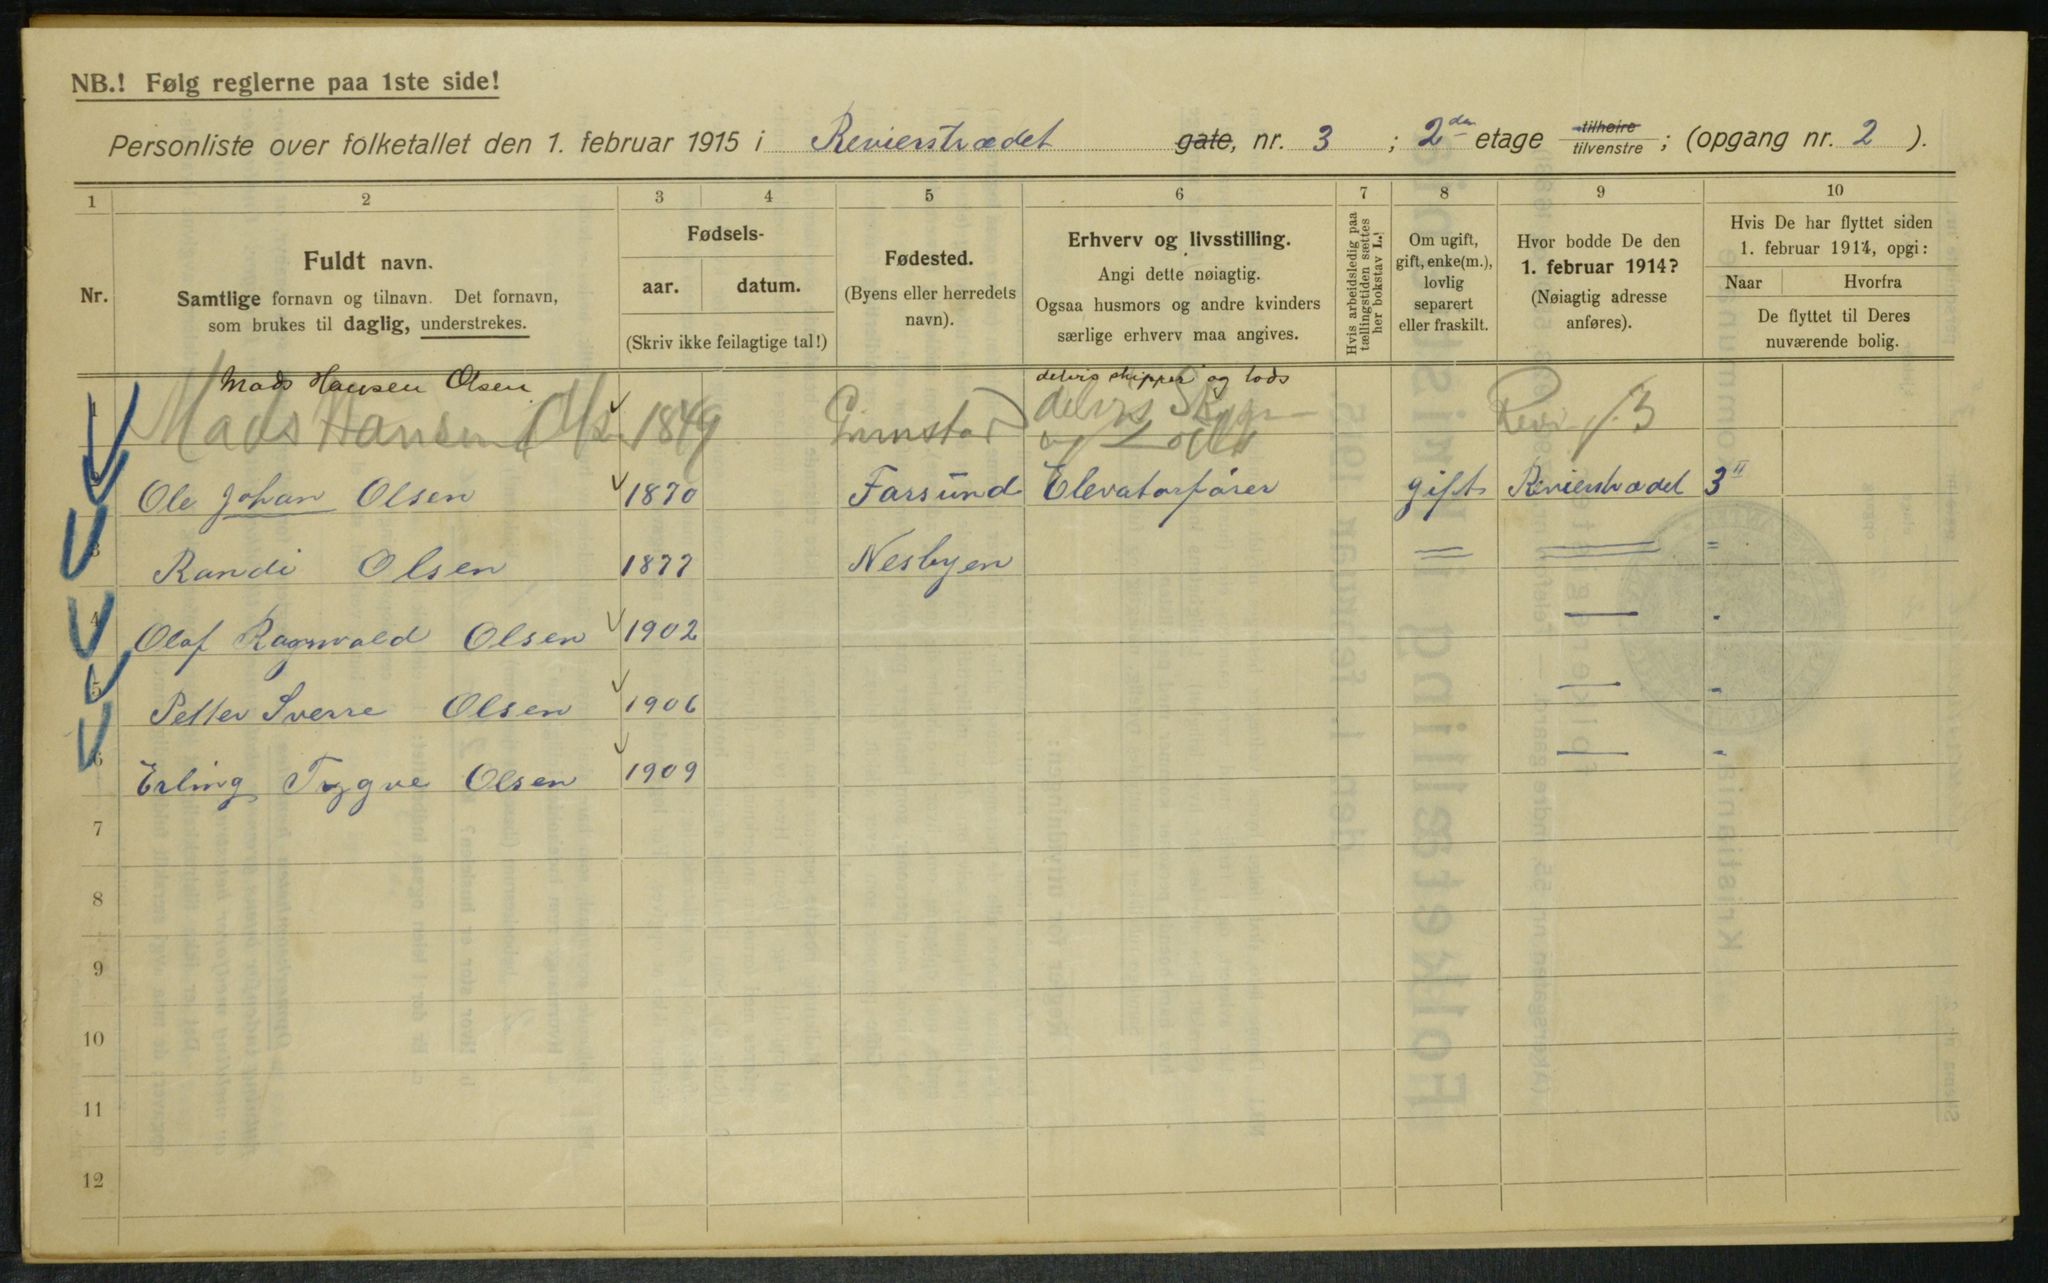 NB.! Følg reglerne paa 1ste side!
Personliste over folketallet den 1. februar 1915 i Revierstrædet gate, nr. 3 ; 2den etage tilhøire tilvenstre ; (opgang nr. 2 ).
1 2 3 4 5 6 7 8 9 10
Nr.
Fuldt navn.
Samtlige fornavn og tilnavn. Det fornavn,
som brukes til daglig, understrekes.
Fødsels-
aar. datum.
(Skriv ikke feilagtige tal!)
Fødested.
(Byens eller herredets
navn).
Erhverv og livsstilling.
Angi dette nøiagtig.
Ogsaa husmors og andre kvinders
særlige erhverv maa angives.
Hvis arbeidsledig paa
tællingstiden sættes
her bokstav L.!
Om ugift,
gift, enke(m.),
lovlig
separert
eller fraskilt.
Hvor bodde De den
1. februar 1914?
(Nøiagtig adresse
anføres).
Hvis De har flyttet siden
1. februar 1914, opgi:
Naar Hvorfra
De flyttet til Deres
nuværende bolig.
Mads Hansen Olsen delvis skipper og lods
1 Mads Hansen Ols. 1849 Grimstad delvis og 3
2 Ole Johan Olsen 1870 Farsund Elevatorfører gift Revierstrædet 3 II
3 Randi Olsen 1877 Nesbyen = = =
4 Olaf Ragnvald Olsen 1902 — "
5 Petter Sverre Olsen 1906 — "
6 Erling Trygve Olsen 1909 — "
7
8
9
10
11
12